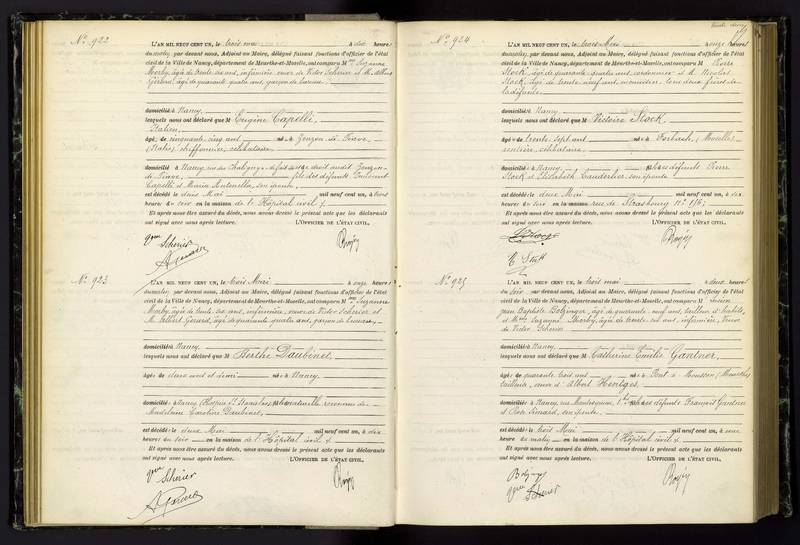 N° 922
L'AN MIL NEUF CENT UN, le trois mai à dix heures
du matin, par devant nous, Adjoint au Maire, délégué faisant fonctions d'officier de l'état
civil de la Ville de Nancy, département de Meurthe-et-Moselle, ont comparu M Suzanne
Morby, âgé de trente six ans, infirmière, veuve de Victor Scherier et M. Albert
Gérard, âgé de quarante quatre ans, garçon de bureau.
domicilié à Nancy
lesquels nous ont déclaré que M Eugène Capelli
Italien
âgé de cinquante cinq ans né à
(Italie) chiffonnier, célibataire
domicilié à Nancy, rue de
fils des défunts
Capelli et Maria Antonella, son épouse,
est décédé le deux Mai mil neuf cent un, à trois
heures du soir en la maison de l'Hôpital civil
Et après nous être assuré du décès, nous avons dressé le présent acte que les déclarants
ont signé avec nous après lecture. L'OFFICIER DE L'ÉTAT CIVIL,
Scherier
N° 923
L'AN MIL NEUF CENT UN, le trois Mai à onze heures
du matin, par devant nous, Adjoint au Maire, délégué faisant fonctions d'officier de l'état
civil de la Ville de Nancy, département de Meurthe-et-Moselle, ont comparu M Suzanne
Morby, âgé de trente six ans, infirmière, veuve de Victor Scherier et
M. Albert Gérard, âgé de quarante quatre ans, garçon de bureau,
domicilié à Nancy
lesquels nous ont déclaré que M Berthe Daubinet,
âgé de deux mois et demi né à Nancy
domicilié à Nancy (Hospice St Stanislas), fille naturelle reconnue de
Madeleine Caroline Daubinet,
est décédé le deux Mai mil neuf cent un, à dix
heures du soir en la maison de l'Hôpital civil
Et après nous être assuré du décès, nous avons dressé le présent acte que les déclarants
ont signé avec nous après lecture. L'OFFICIER DE L'ÉTAT CIVIL,
Scherier
N° 924
L'AN MIL NEUF CENT UN, le trois Mai à onze heures
du matin, par devant nous, Adjoint au Maire, délégué faisant fonctions d'officier de l'état
civil de la Ville de Nancy, département de Meurthe-et-Moselle, ont comparu M Pierre
Stock, âgé de quarante quatre ans, cordonnier et M. Nicolas
Stock, âgé de trente neuf ans, menuisier, tous deux frères de
la défunte
domicilié à Nancy
lesquels nous ont déclaré que M Victoire Stock,
âgé de trente sept ans né à Forbach (Moselle)
rentière, célibataire
domicilié à Nancy, fille des défunts Pierre
Stock et Elisabeth son épouse
est décédé le deux Mai mil neuf cent un, à dix
heures du soir en la maison rue de Strasbourg n° 176;
Et après nous être assuré du décès, nous avons dressé le présent acte que les déclarants
ont signé avec nous après lecture. L'OFFICIER DE L'ÉTAT CIVIL,
N. Stock
N° 925
L'AN MIL NEUF CENT UN, le trois mai à deux heures
du soir, par devant nous, Adjoint au Maire, délégué faisant fonctions d'officier de l'état
civil de la Ville de Nancy, département de Meurthe-et-Moselle, ont comparu M
Jean Baptiste Bolzinger, âgé de quarante neuf ans, tailleur d'habits,
et Suzanne Morby, âgée de trente six ans, infirmière, veuve
de Victor Scherier
domicilié à Nancy
lesquels nous ont déclaré que M Catherine Emilie Gantner,
âgé de quarante trois ans né à Pont à Mousson (Meurthe)
tailleuse, veuve d'Albert Hentges,
domicilié à Nancy, rue Montesquieu, fille des défunts François Gantner
et son épouse,
est décédé le trois Mai mil neuf cent un, à onze
heures du matin en la maison de l'Hôpital civil
Et après nous être assuré du décès, nous avons dressé le présent acte que les déclarants
ont signé avec nous après lecture. L'OFFICIER DE L'ÉTAT CIVIL,
Scherier